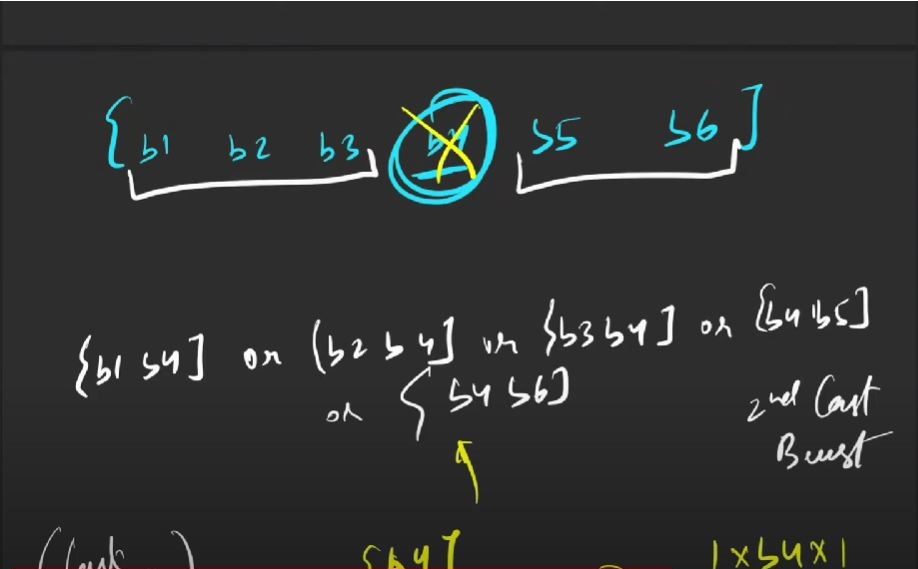 {b1 b2 b3 b4 b5 b6]
{b1 b4] or (b2 b4] or {b3 b4] or {b4 b5]
or { b4 b6]
2nd Last
Burst
(Last )
{b4]
1 x b4 x 1